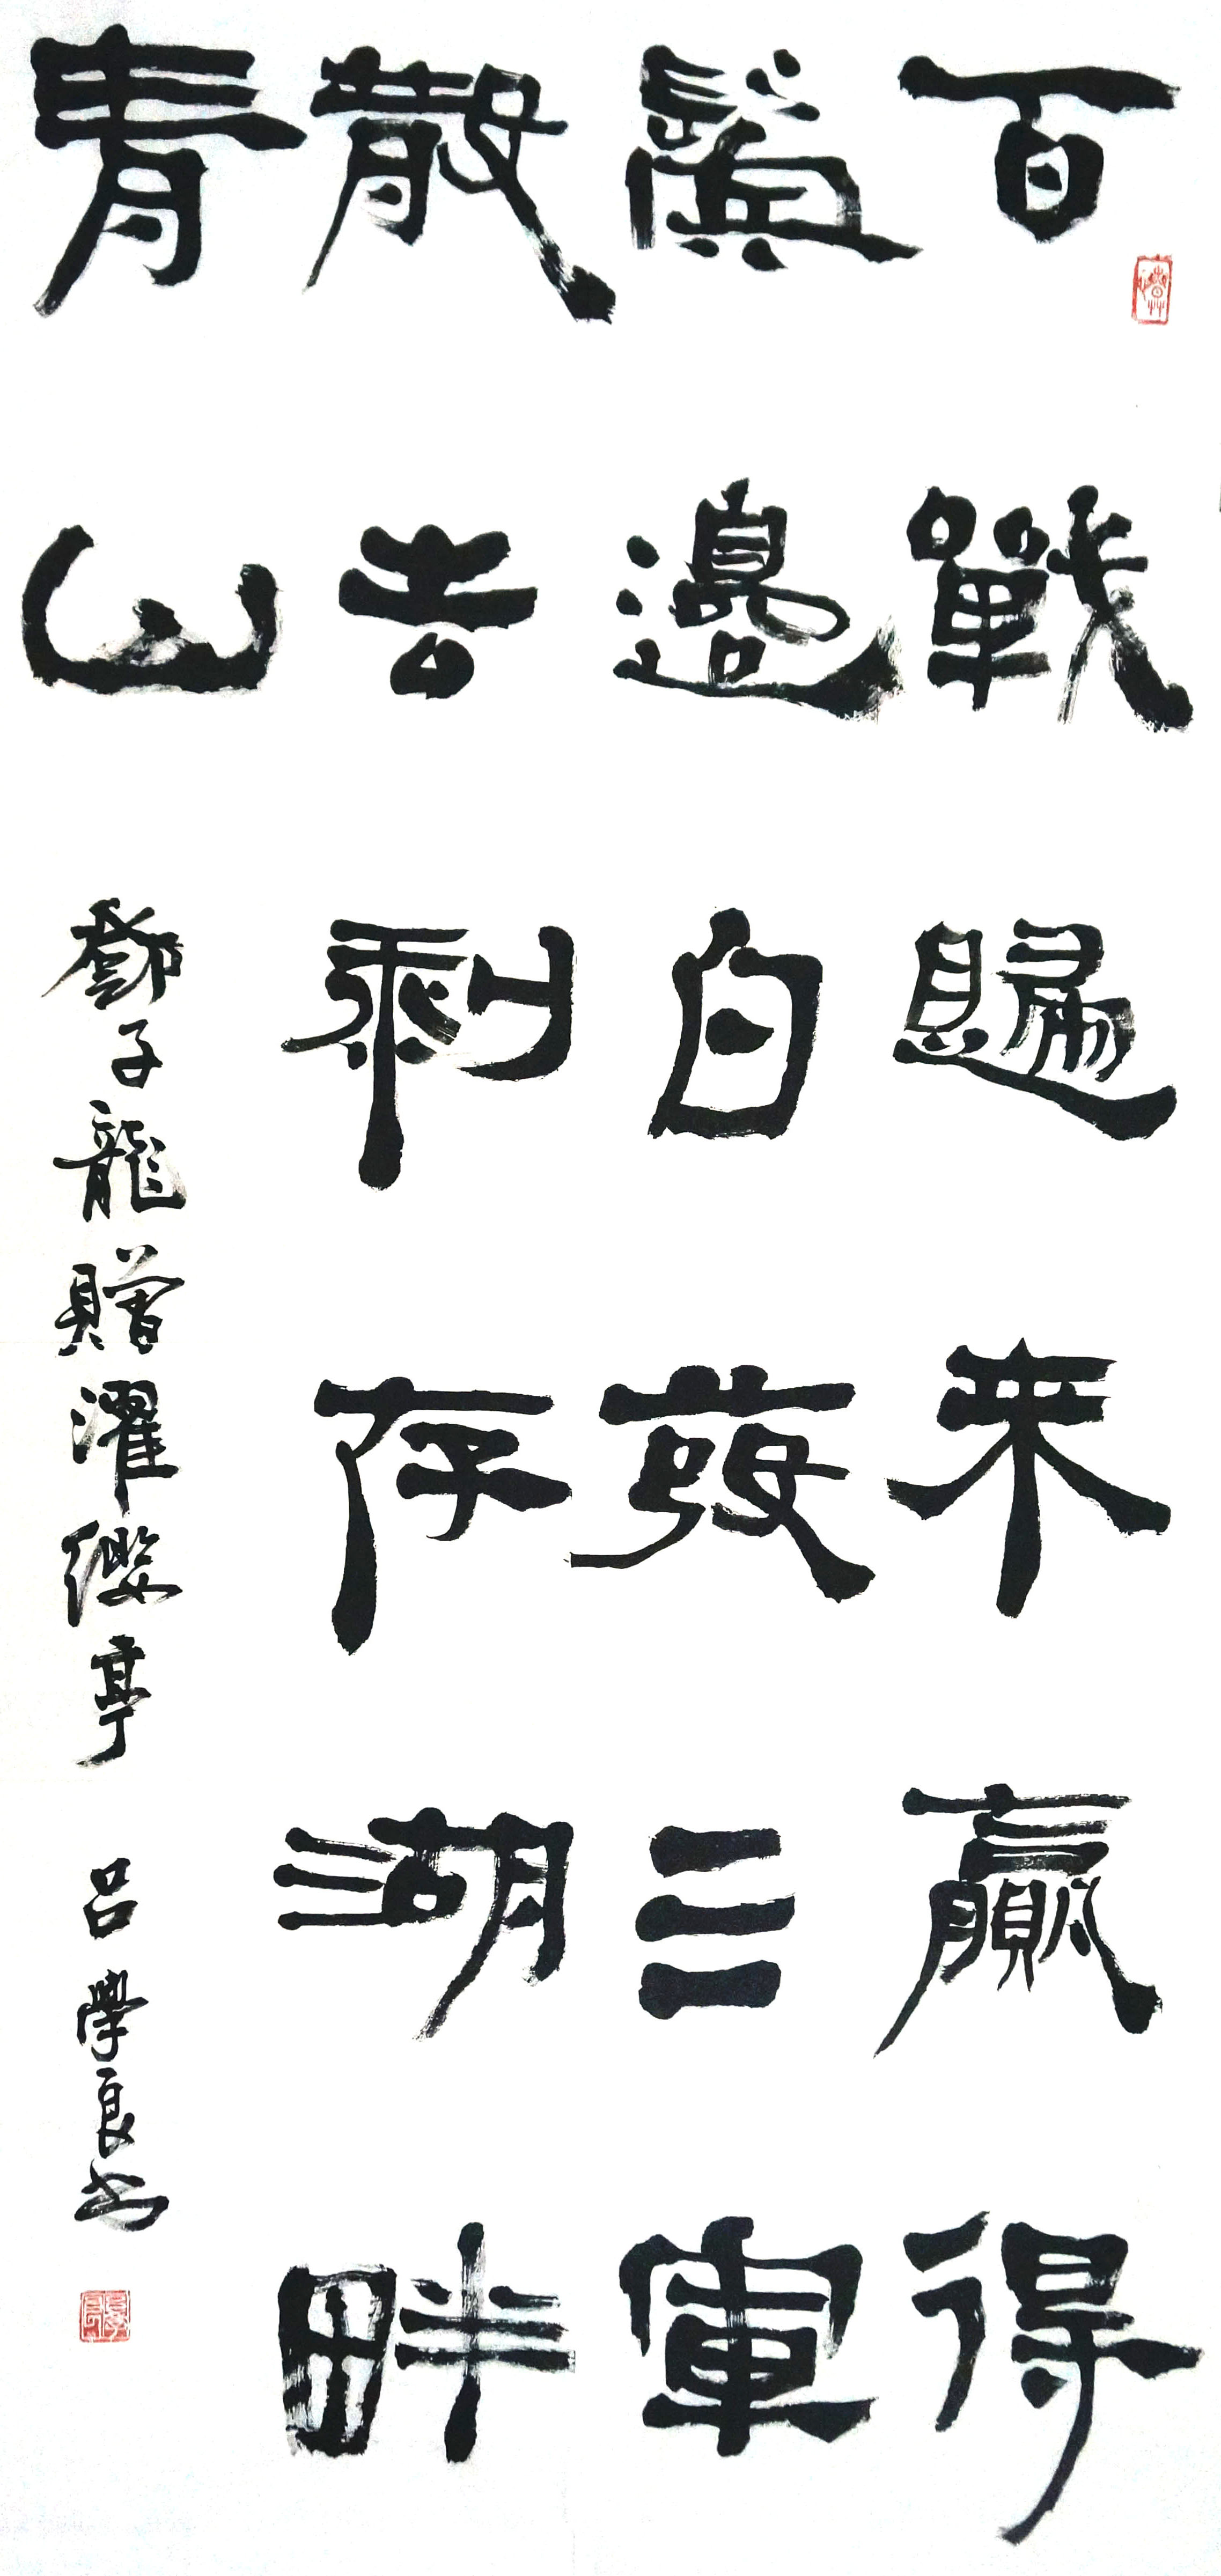 百戰歸来贏得
鬢邊白發三軍
散去剩存湖畔
青山
鄧子龍贈濯纓亭 呂學良书